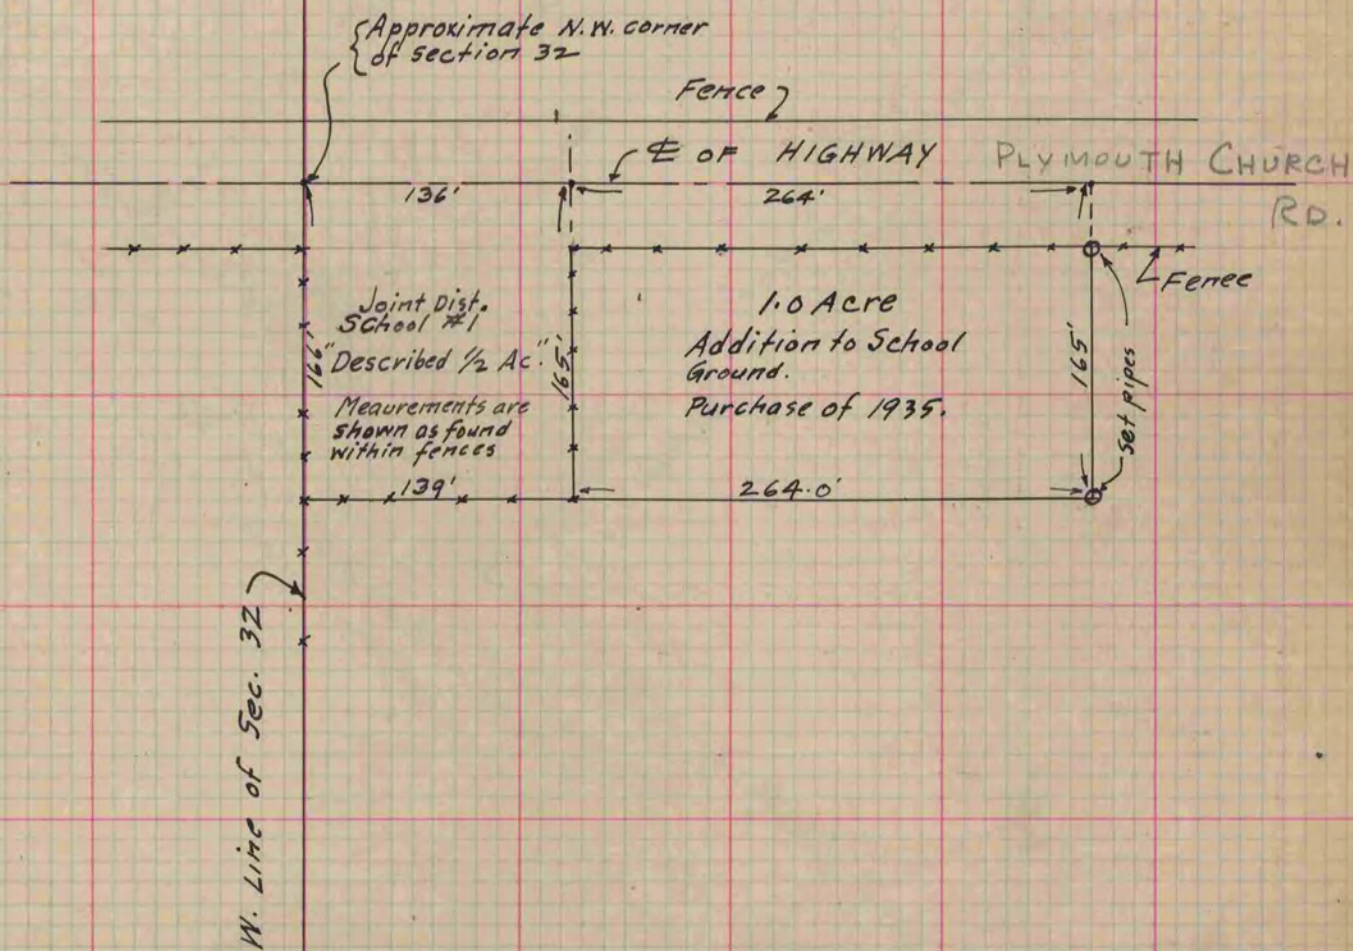 Approximate N.W. corner
of section 32
Fence
℄ OF HIGHWAY
PLYMOUTH CHURCH
RD.
136'
264'
Fenec
Joint Dist.
School #1
"Described 1/2 Ac."
Meaurements are
shown as found
within fences
166'
165'
1.0 Acre
Addition to School
Ground.
Purchase of 1935.
165'
set pipes
139'
264.0'
W. Line of Sec. 32